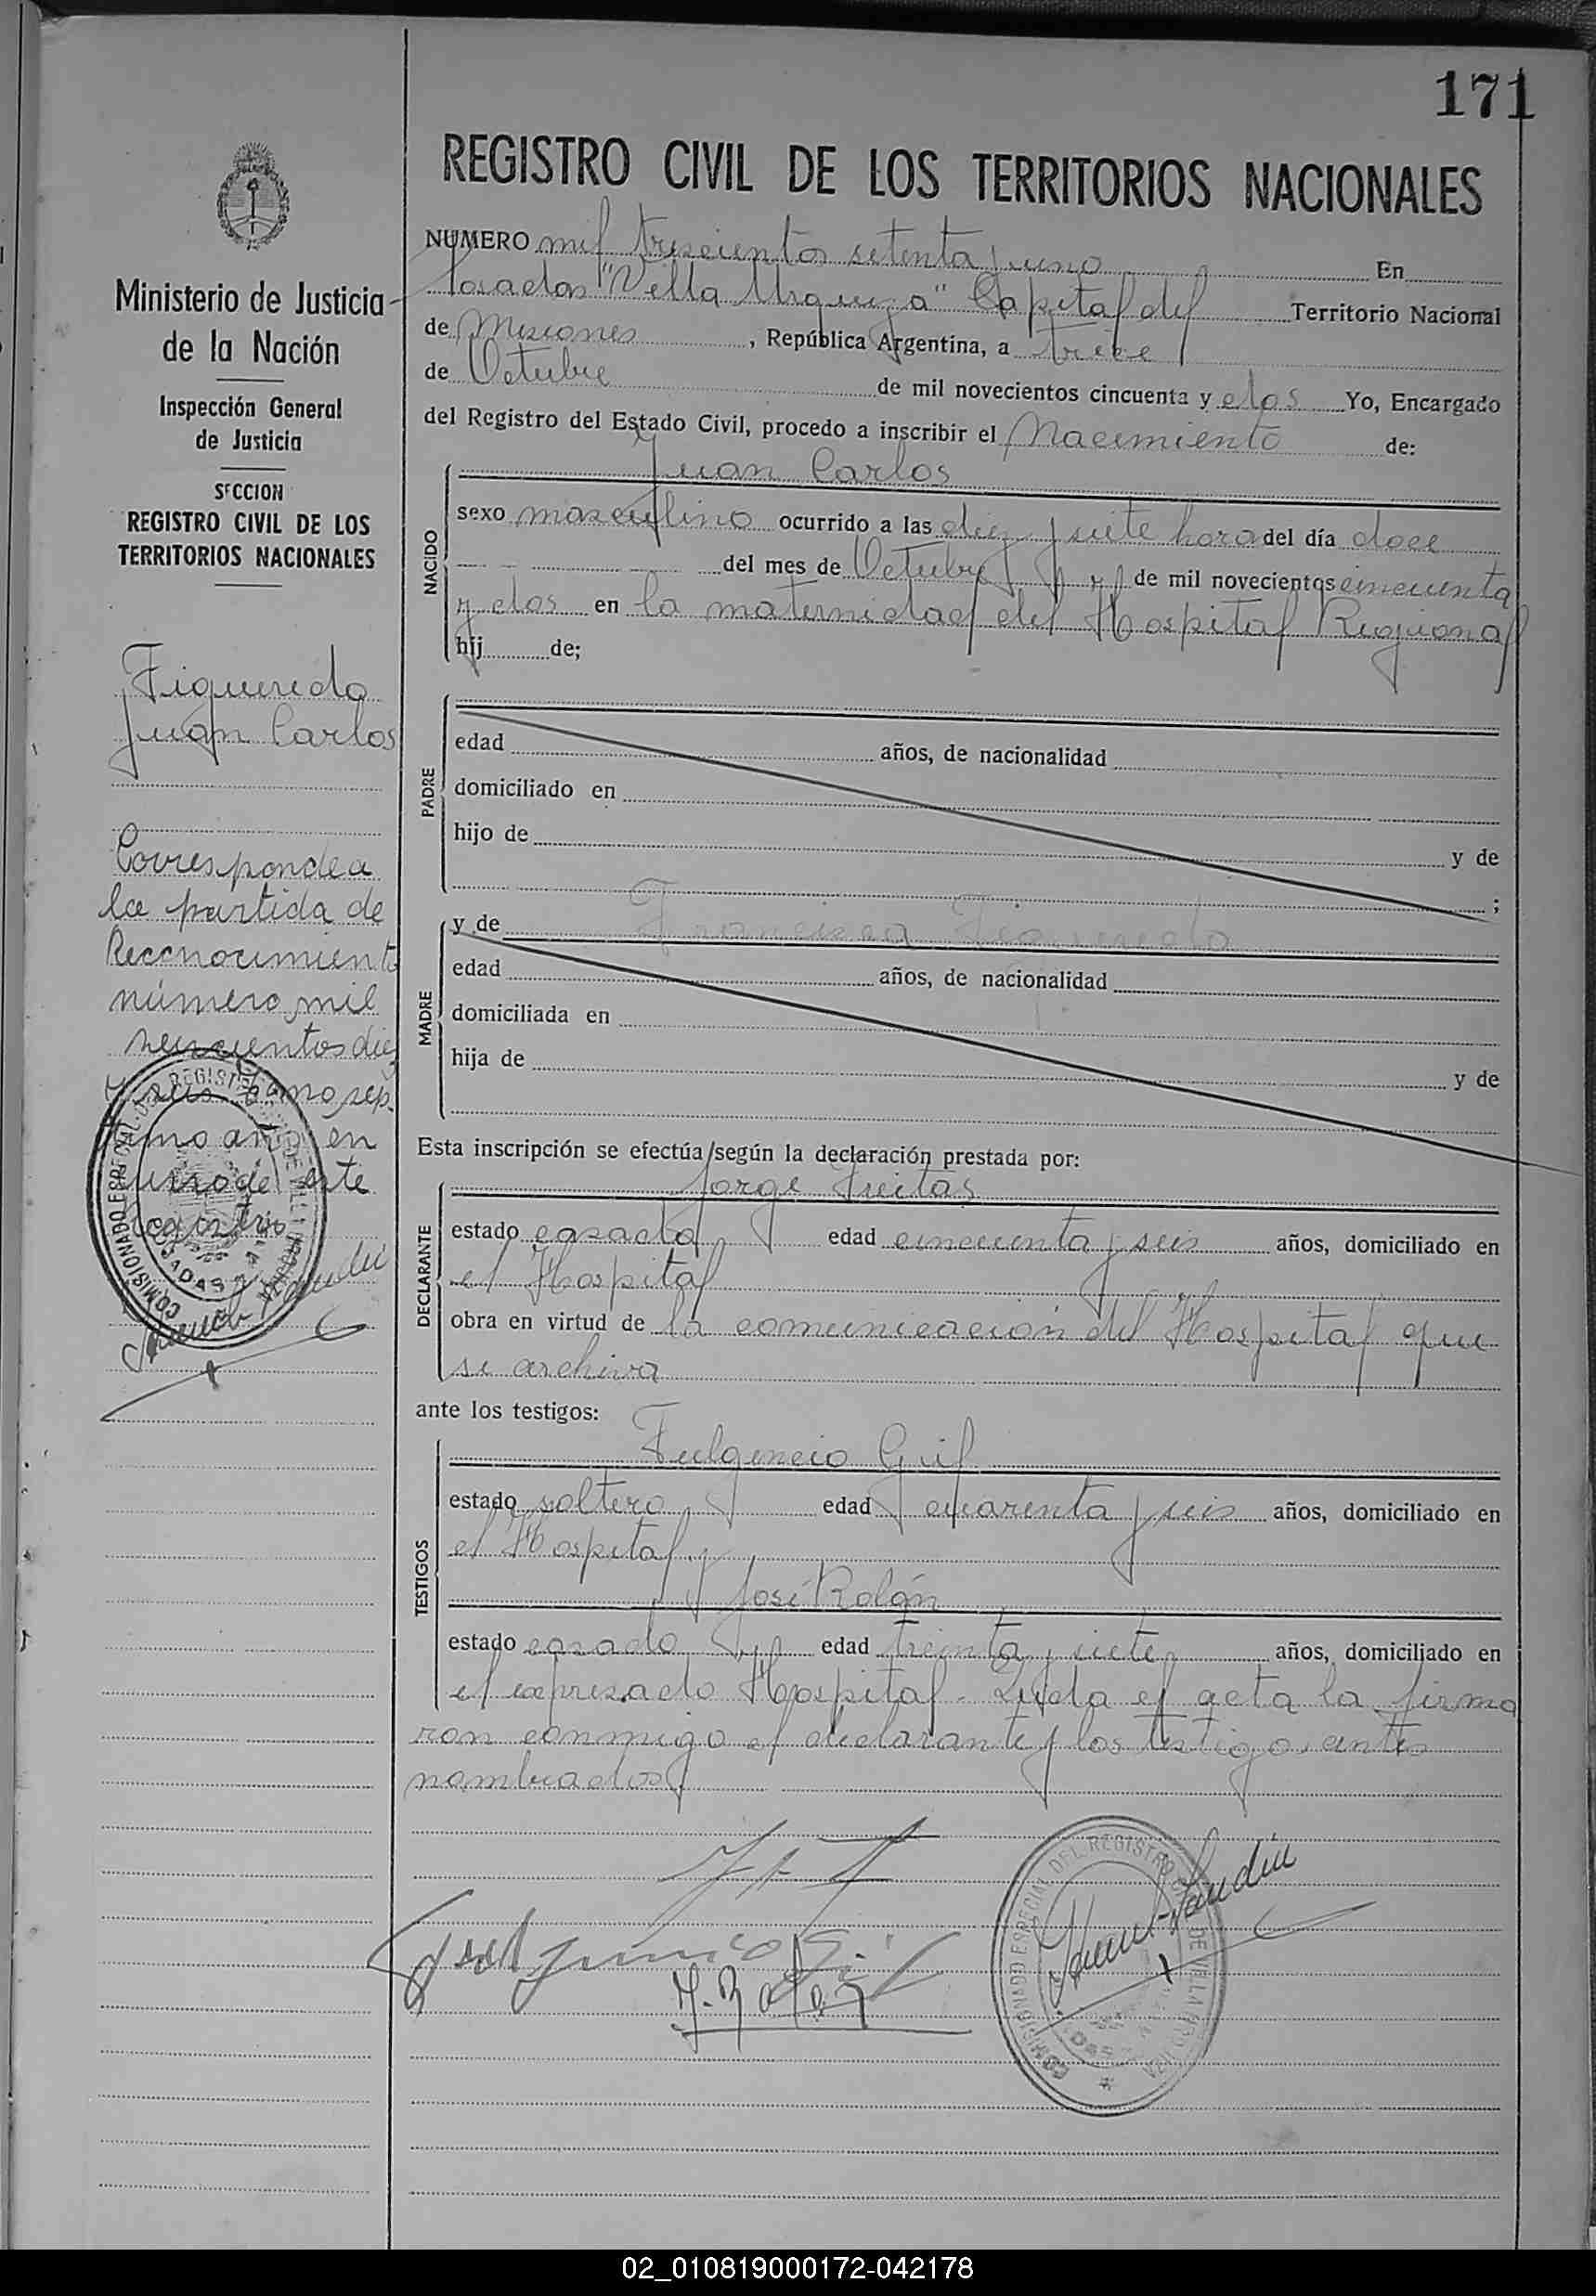 171
REGISTRO CIVIL DE LOS TERRITORIOS NACIONALES
NUMERO mil trescientos setenta y uno En
Posadas "Villa Urquiza" Capital del Territorio Nacional
de Misiones, República Argentina, a trece
de Octubre de mil novecientos cincuenta y dos Yo, Encargado
del Registro del Estado Civil, procedo a inscribir el Nacimiento de:
Juan Carlos
NACIDO
sexo masculino ocurrido a las diez y siete hora del día doce
del mes de Octubre de mil novecientos cincuenta
y dos en la maternidad del Hospital Regional
hij de;
PADRE
edad años, de nacionalidad
domiciliado en
hijo de y de
;
MADRE
y de Francisca Figueredo
edad años, de nacionalidad
domiciliada en
hija de y de
Esta inscripción se efectúa según la declaración prestada por:
DECLARANTE
Jorge Freitas
estado casado edad cincuenta y seis años, domiciliado en
el Hospital
obra en virtud de la comunicación del Hospital que
se archiva
ante los testigos:
TESTIGOS
Fulgencio Gil
estado soltero edad cuarenta y seis años, domiciliado en
el Hospital y
José Rolón
estado casado edad treinta y siete años, domiciliado en
el expresado Hospital. Leída el acta la firma
ron conmigo el declarante y los testigos antes
nombrados
COMISIONADO ESPECIAL DEL REGISTRO DE VILLA URQUIZA
Ministerio de Justicia
de la Nación
Inspección General
de Justicia
SECCION
REGISTRO CIVIL DE LOS
TERRITORIOS NACIONALES
Figueredo
Juan Carlos
Corresponde a
la partida de
Reconocimiento
número mil
seiscientos diez
y seis tomo sép
timo año en
curso de este
registro
02_010819000172-042178